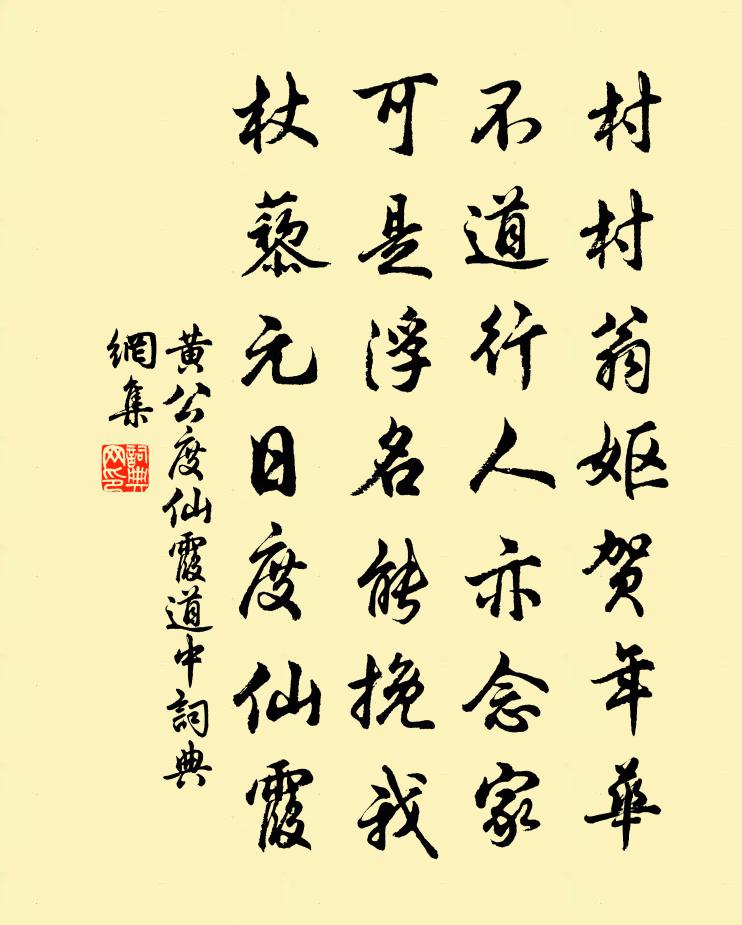 村村翁妪贺年华
不道行人亦念家
可是浮名能挽我
杖藜元日度仙霞
黄公度仙霞道中詞典
網集
詞典
网印